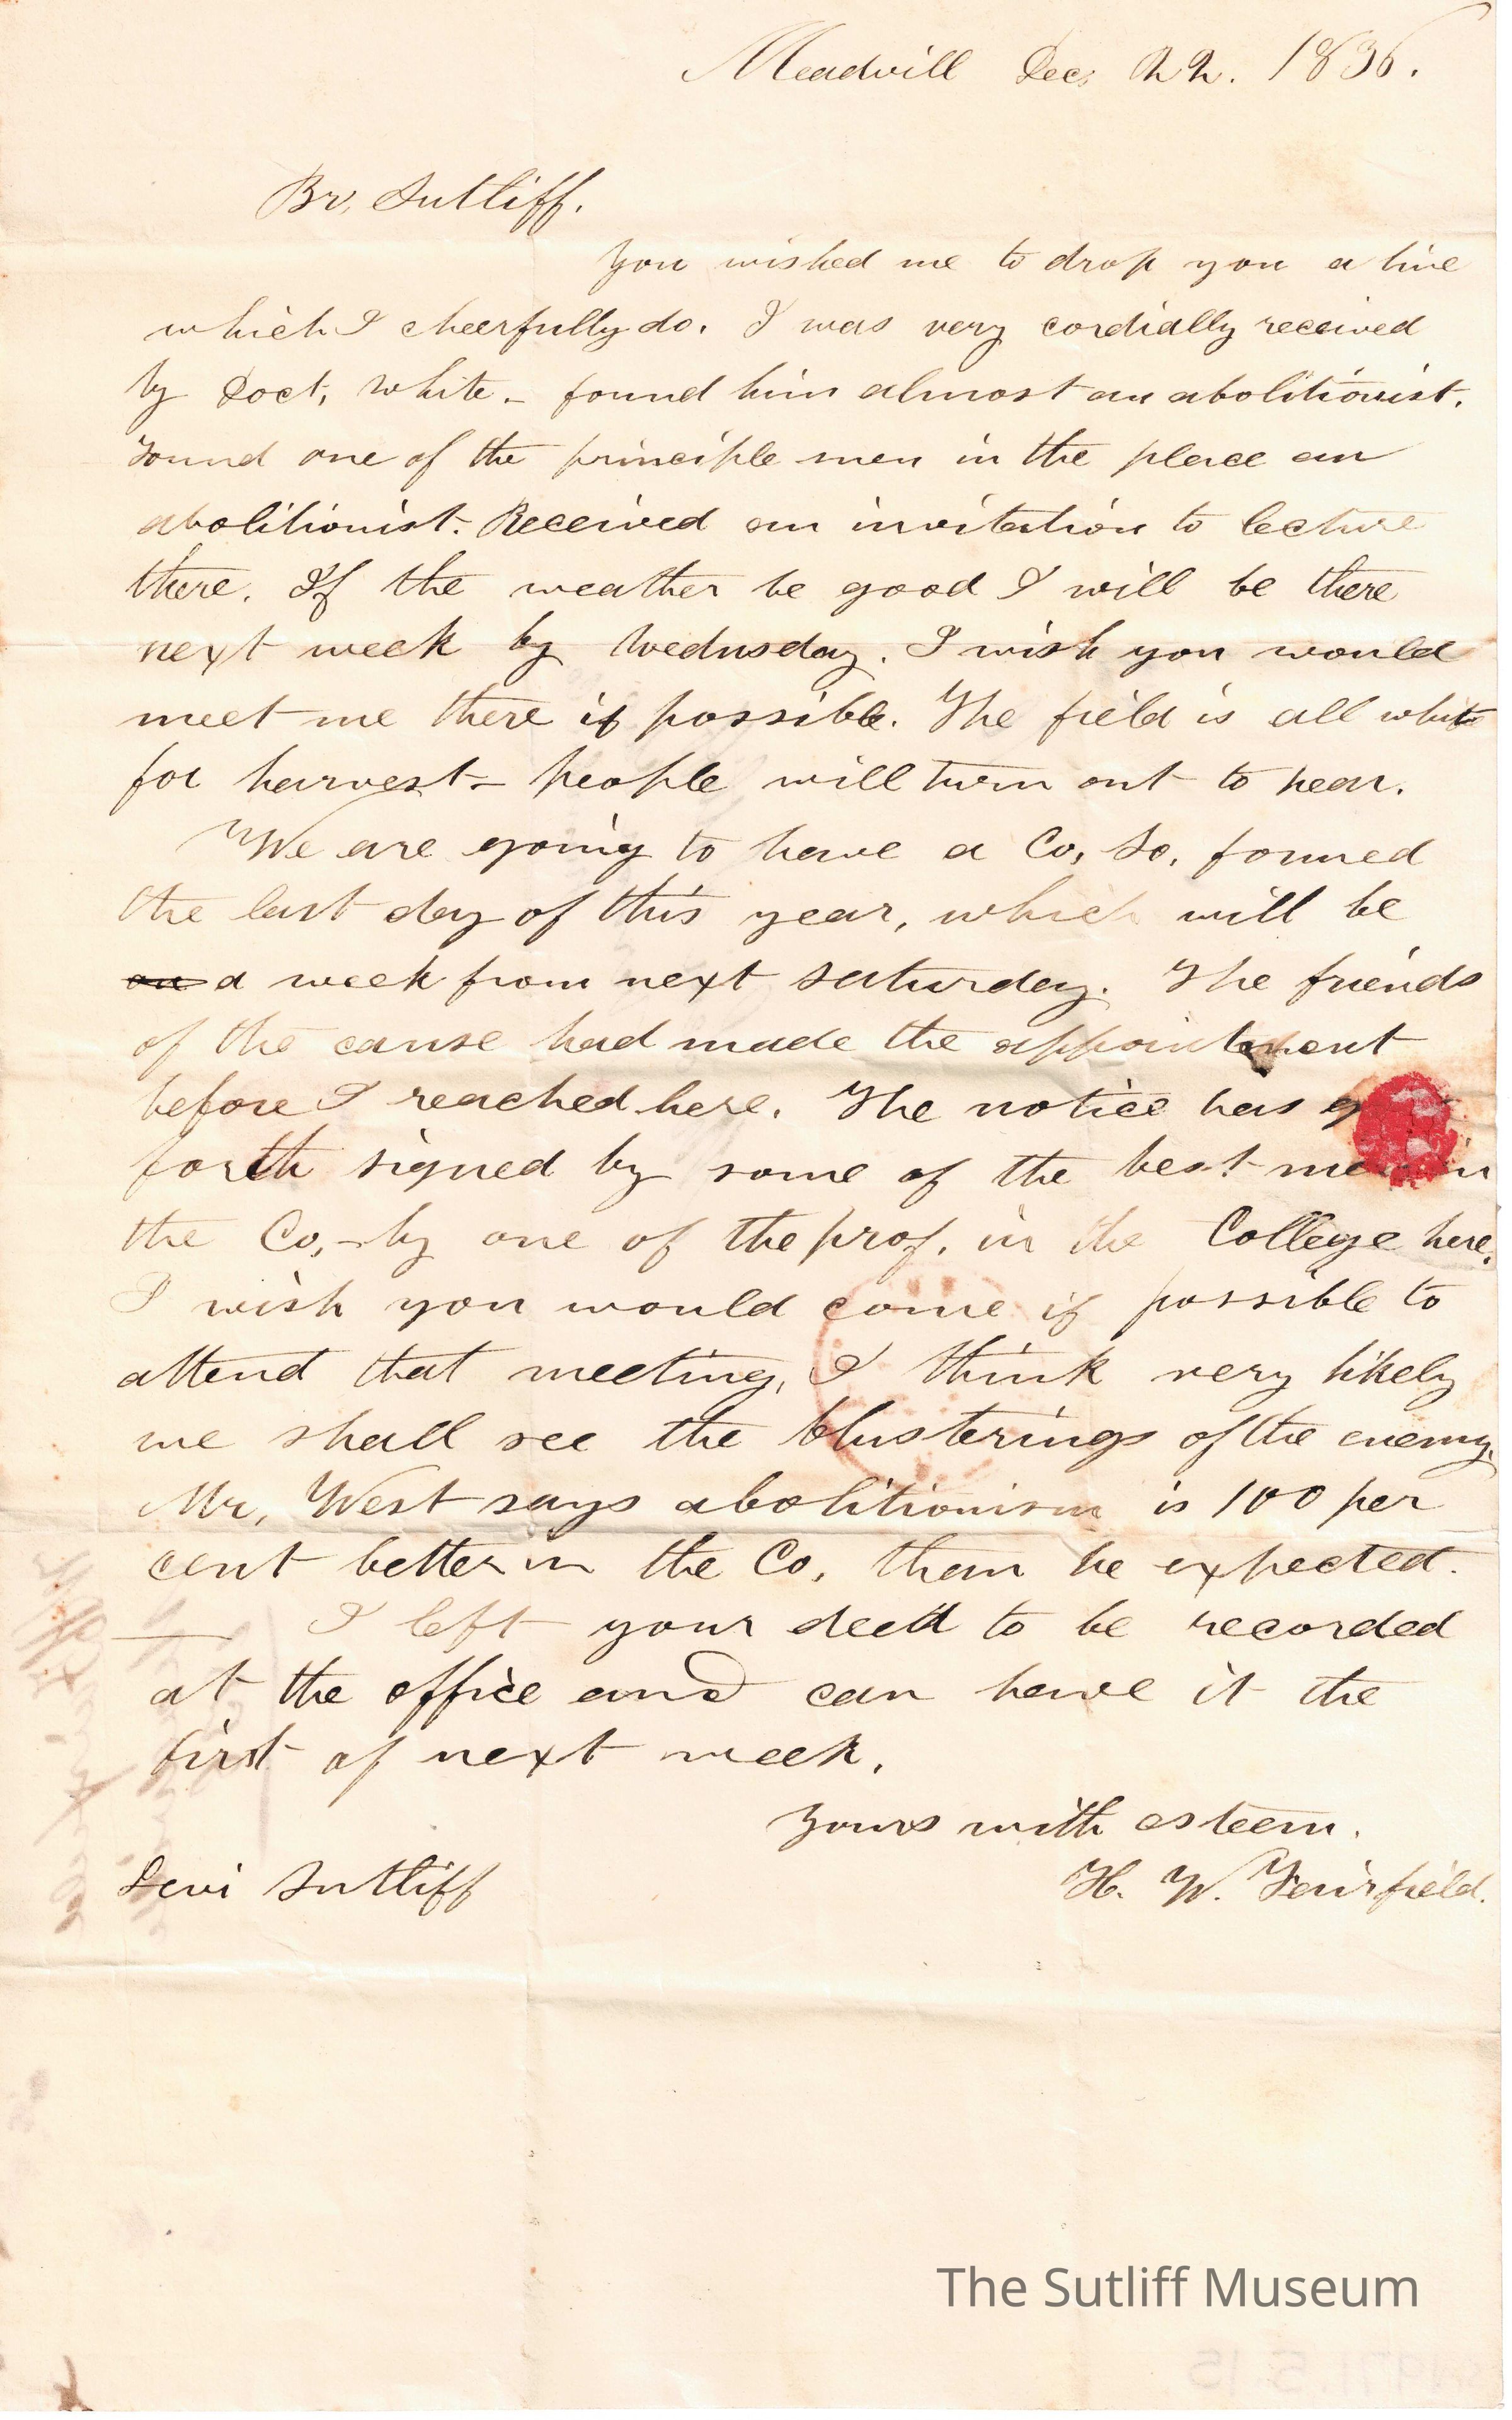 Meadvill Dec. 22. 1836.
Br. Sutliff.
You wished me to drop you a line
which I cheerfully do. I was very cordially received
by Doct. White. - found him almost an abolitionist.
Found one of the principle men in the place an
abolitionist. Received an invitation to lecture
there. If the weather be good I will be there
next week by Wednsday. I wish you would
meet me there if possible. The field is all white
for harvest - people will turn out to hear.
We are going to have a Co. So. formed
the last day of this year, which will be
on a week from next Saturday. The friends
of the cause had made the appointment
before I reached here. The notice has
forth signed by some of the best men in
the Co, - by one of the prof. in the College here.
I wish you would come if possible to
attend that meeting, I think very likely
we shall see the blusterings of the enemy.
Mr. West says abolitionism is 100 per
cent better in the Co. than he expected.
— I left your deed to be recorded
at the office and can have it the
first of next week.
Yours with esteem.
Levi Sutliff H. W. Fairfield.
The Sutliff Museum